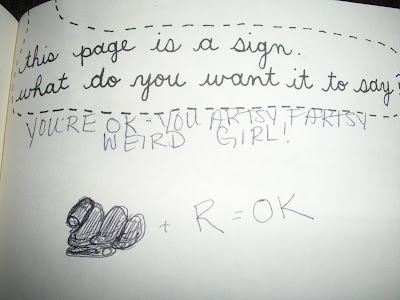 this page is a sign.
what do you want it to say?
YOU'RE OK - YOU ARTSY FARTSY
WEIRD GIRL!
+ R = OK